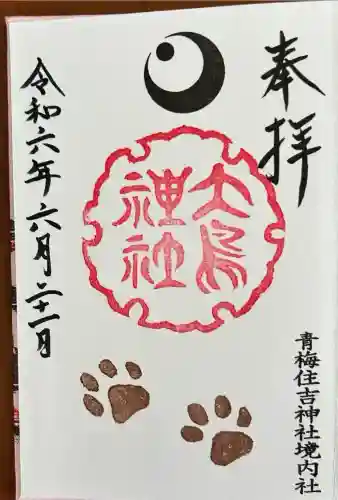 奉拝
大鳥
神社
令和六年六月二十一月
青梅住吉神社境内社